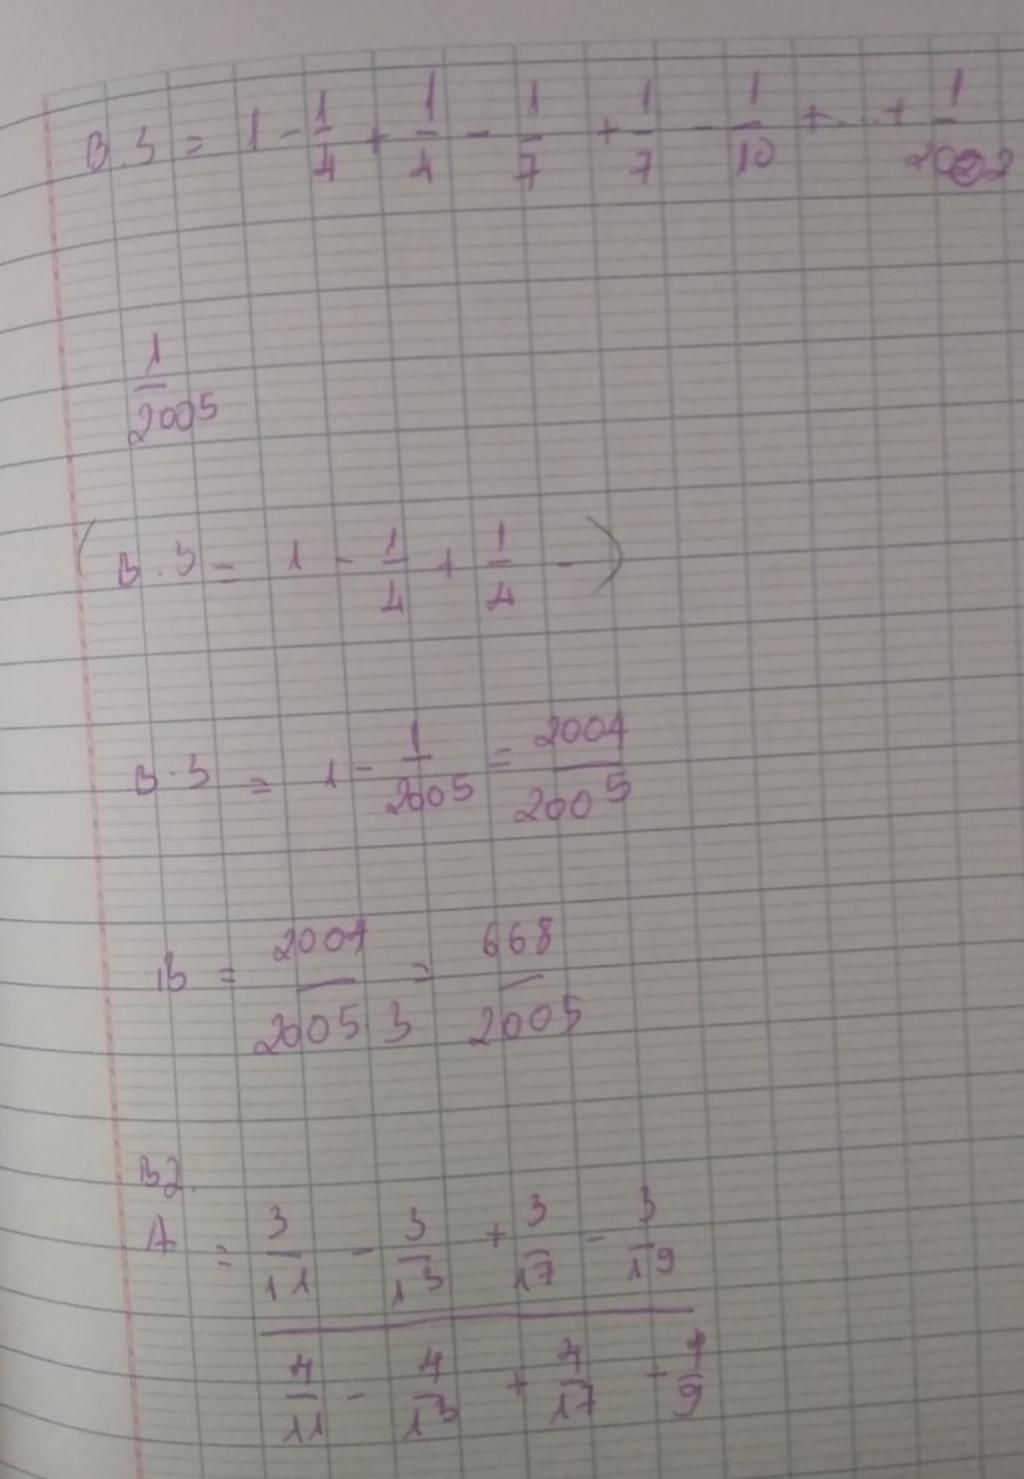 B.3 = 1 - 1/4 + 1/4 - 1/7 + 1/7 - 1/10 + ... + 1/2002
1/2005
(B.3 = 1 - 1/4 + 1/4 - )
B.3 = 1 - 1/2005 = 2004/2005
B = 2004/2005 3 = 668/2005
B2.
A = 3/11 - 3/13 + 3/17 - 3/19
4/11 - 4/13 + 4/17 - 4/9